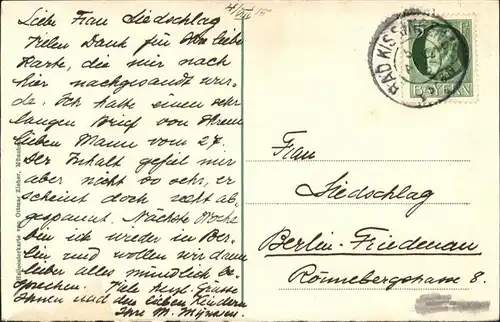 4/VIII 15
Liebe Frau Siedschlag
Vielen Dank für Ihre liebe
Karte, die mir nach
hier nachgesandt wur-
de. Ich hatte einen sehr
langen Brief von Ihrem
lieben Mann vom 27.
Der Inhalt gefiel mir
aber nicht so sehr, er
scheint doch recht ab-
gespannt. Nächste Woche
bin ich wieder in Ber-
lin und wollen wir dann
lieber alles mündlich be-
sprechen. Viele herzl. Grüsse
Ihnen und den lieben Kindern
Ihre M.
BAD KISSINGEN
BAYERN
Frau
Siedschlag
Berlin-Friedenau
Rönnebergstrasse 8.
von Ottmar Zieher, München